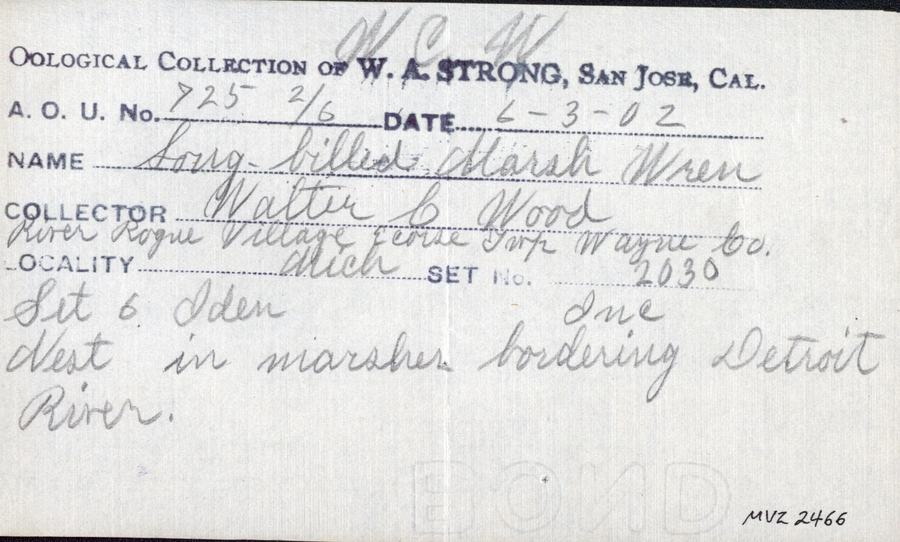 W C W
OOLOGICAL COLLECTION OF W. A. STRONG, SAN JOSE, CAL.
A. O. U. No. 725 2/6 DATE 6-3-02
NAME Long-billed Marsh Wren
COLLECTOR Walter C Wood
River Rogue Village Ecorse Twp Wayne Co.
LOCALITY Mich SET No. 2030
Set 6 Iden Inc
Nest in marshes bordering Detroit
River.
BOND
MVZ 2466